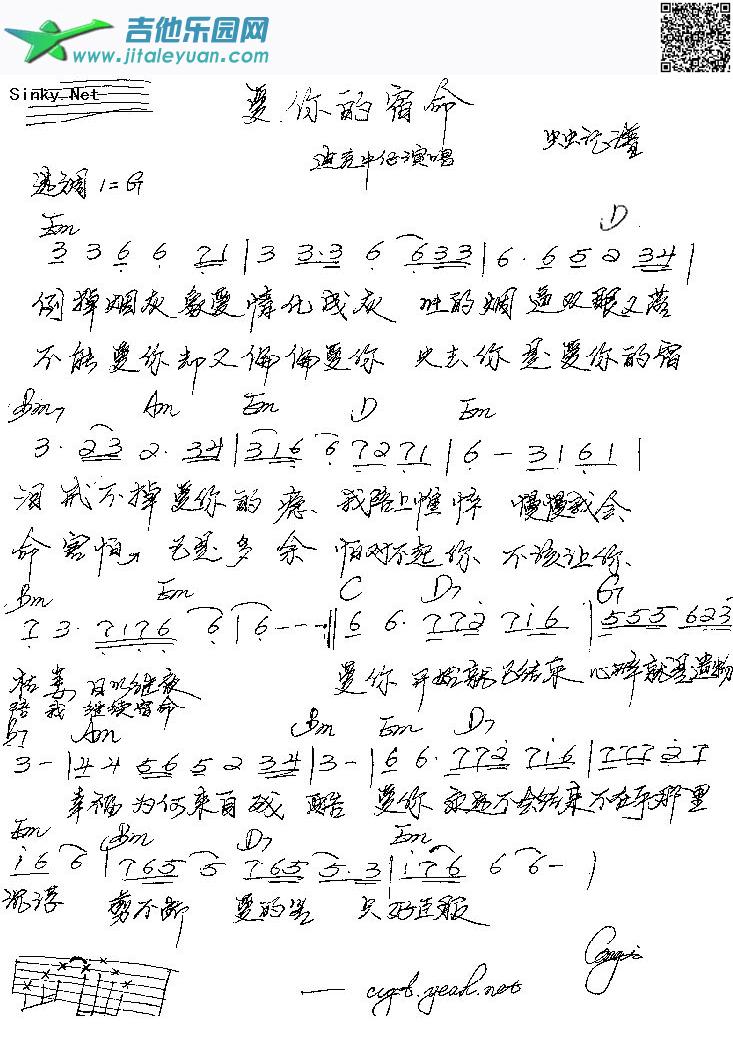 吉他乐园网
www.jitaleyuan.com
Sinky.Net
爱你的宿命
迪克牛仔演唱
虫虫记谱
选调 1=G
Em D
3 3 6 6 7 1 | 3 3·3 6 6 3 3 | 6· 6 5 2 3 4 |
倒掉烟灰 象爱情化成灰 吐的烟 逼双眼又落
不能爱你却又偏偏爱你 失去你是爱你的宿
Bm7 Am Em D Em
3· 2 3 2· 3 4 | 3 1 6 6 7 2 7 1 | 6 – 3 1 6 1 |
泪 戒不掉爱你的瘾 我陪上憔悴 慢慢我会
命 害怕 已是多余 怕对不起你 不该让你
Bm Em C D7 G
7 3· 7 1 7 6 6 | 6 – – – :‖ 6 6· 7 7 2 7 i 6 | 5 5 5 6 2 3
枯萎 日以继夜 爱你 开始就已结束 心碎就是遗物
陪我 继续宿命
B7 Am Bm Em D7
3 – | 4 4 5 6 5 2 3 4 | 3 – | 6 6· 7 7 2 7 i 6 | 7 7 7 2 7
幸福为何来自残酷 爱你 永远不会结束 不在乎那里
Em Bm D7 Em
i 6 6 | 7 6 5 5 7 6 5 5· 3 | i 7 6 6 6 – )
沉浮 剪不断 爱的苦 只好臣服
cygt.yeah.net